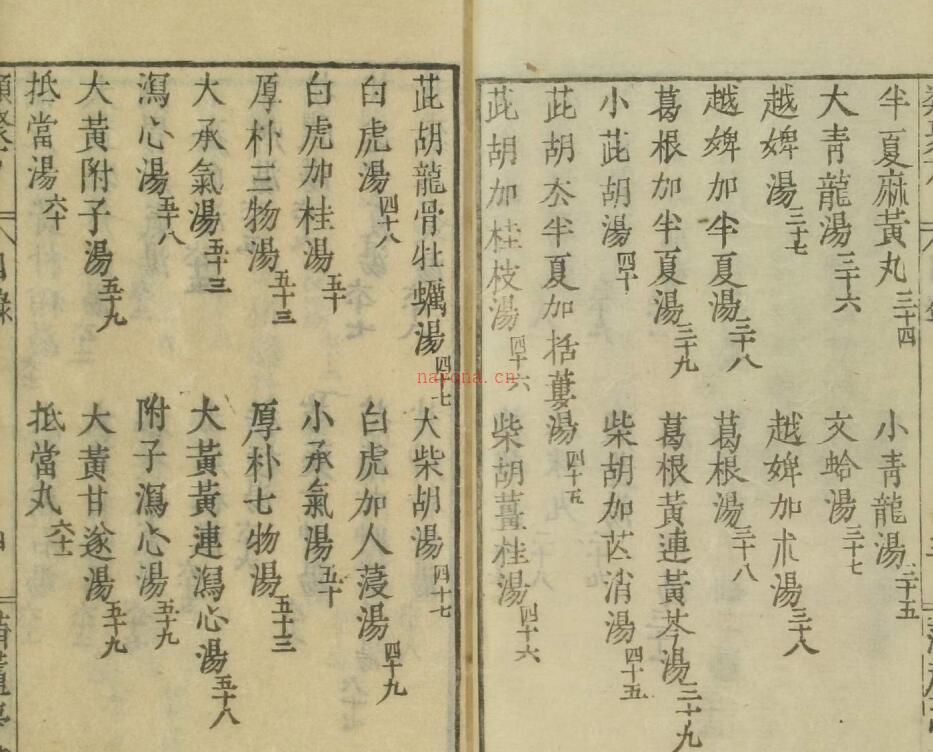 半夏麻黃丸三十四 小青龍湯三十五
大青龍湯三十六 文蛤湯三十七
越婢湯三十七 越婢加朮湯三十八
越婢加半夏湯三十八 葛根湯三十八
葛根加半夏湯三十九 葛根黃連黃芩湯三十九
小茈胡湯四十 柴胡加芒消湯四十五
茈胡厺半夏加括蔞湯四十五
茈胡加桂枝湯四十六 柴胡薑桂湯四十六
茈胡龍骨牡蠣湯四十七 大柴胡湯四十七
白虎湯四十八 白虎加人薓湯四十九
白虎加桂湯五十 小承氣湯五十
厚朴三物湯五十三 厚朴七物湯五十三
大承氣湯五十三 大黃黃連瀉心湯五十八
瀉心湯五十八 附子瀉心湯五十九
大黃附子湯五十九 大黃甘遂湯五十九
抵當湯六十 抵當丸六十二
目錄
nayona.cn